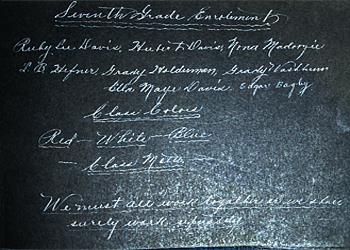 Seventh Grade Enrolment
Ruby Lee Davis, Hubert Davis, Nona
L B Hefner, Grady Holdeman, Grady
Ella Maye Davis Edgar Bagby
Class Colors
Red - White - Blue
Class Motto
We must all work together or we shall
surely work separately